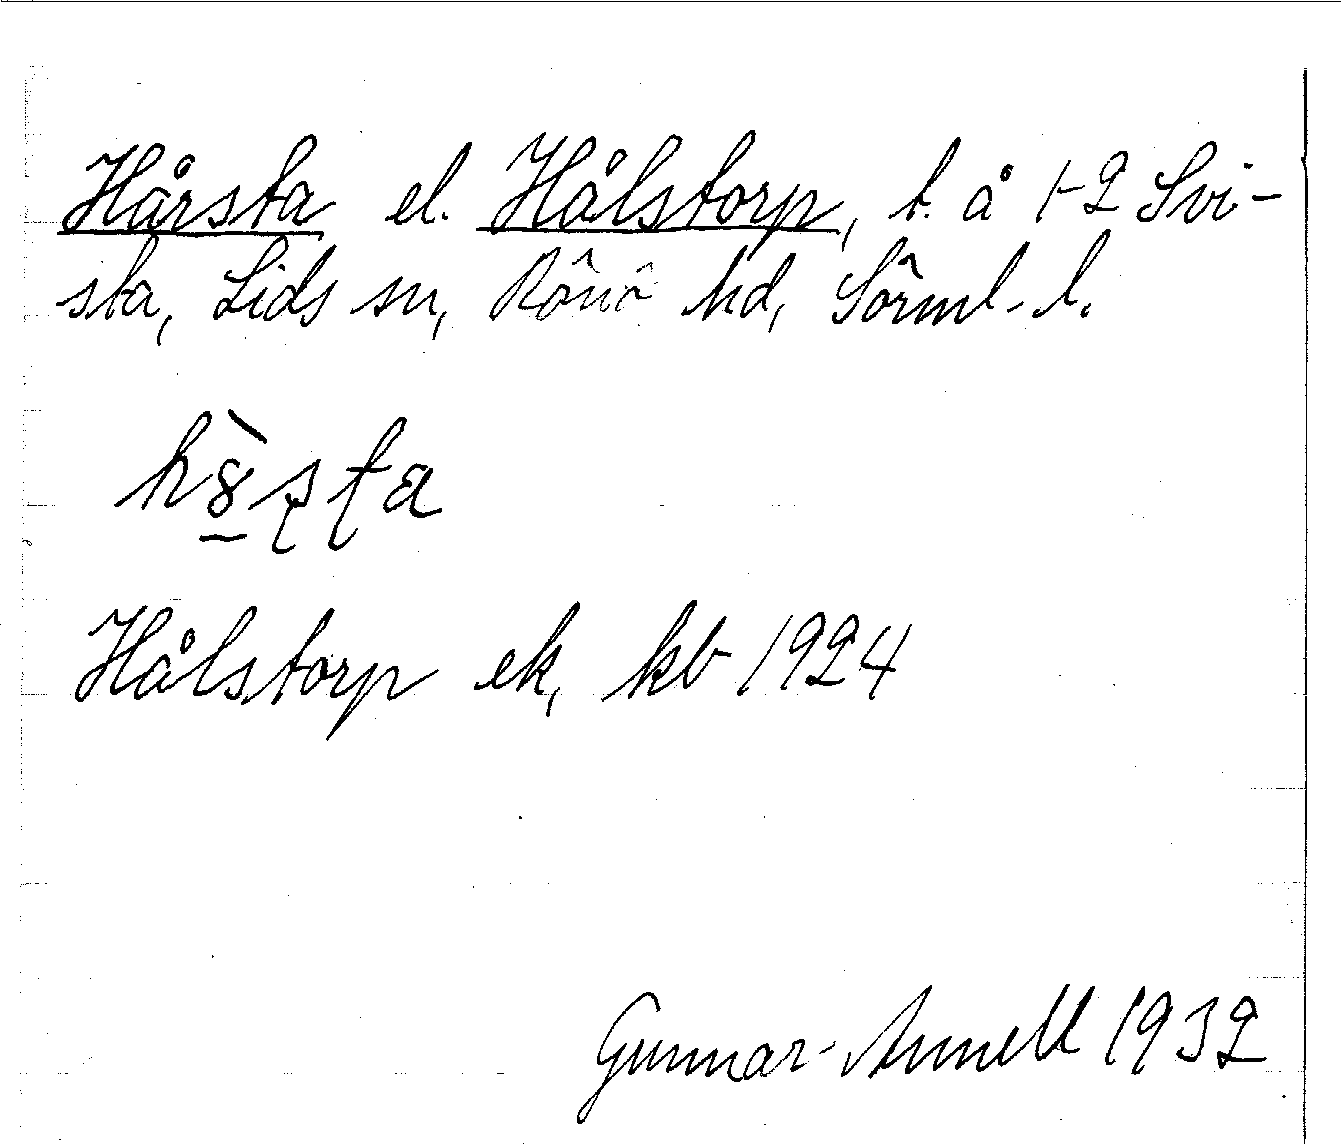 Hårsta el. Hålstorp, t. å 1-2 Svi-
sta, Lids sn, Rönö hd, Sörml. l.
Hålstorp ek, kb 1924
Gunnar Annell 1932